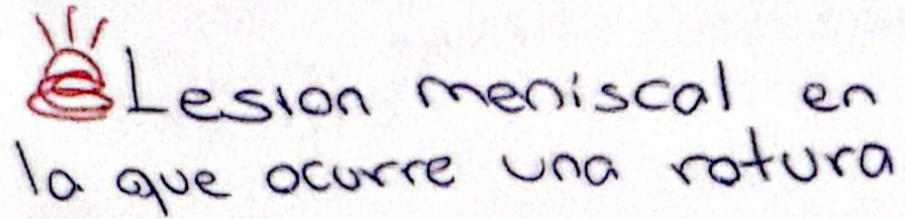 Lesion meniscal en
la que ocurre una rotura